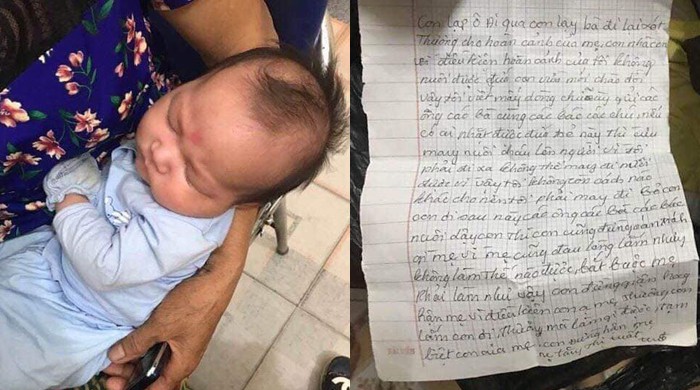 Con lạp ô Ai qua con lạy bà đi lại xót
Thương cho hoàn cảnh của mẹ con nhà con
vì điều kiện hoàn cảnh của tôi không
nuôi được đứa con vừa mới chào đời
vậy tôi viết mấy dòng chữ này gửi các
ông các bà cùng các bác các chú nếu
có ai nhặt được đứa trẻ này thì cưu
mang nuôi cháu lên người vì tôi
phải đi xa không thể mang đi nuôi
được vì vậy tôi không còn cách nào
khác cho nên tôi phải may đi Bỏ con
con đi sau này các ông các bà các bác
nuôi dậy con thì con cũng đừng oán trách
gì mẹ vì mẹ cũng đau lòng lắm nhưng
không làm thế nào được bắt buộc mẹ
Phải làm như vậy con đừng quân
hận mẹ vì điều kiện con ạ mẹ thương con
lắm con đi. Thương mà làm gì được tạm
biệt con của mẹ con đừng hận mẹ
mẹ